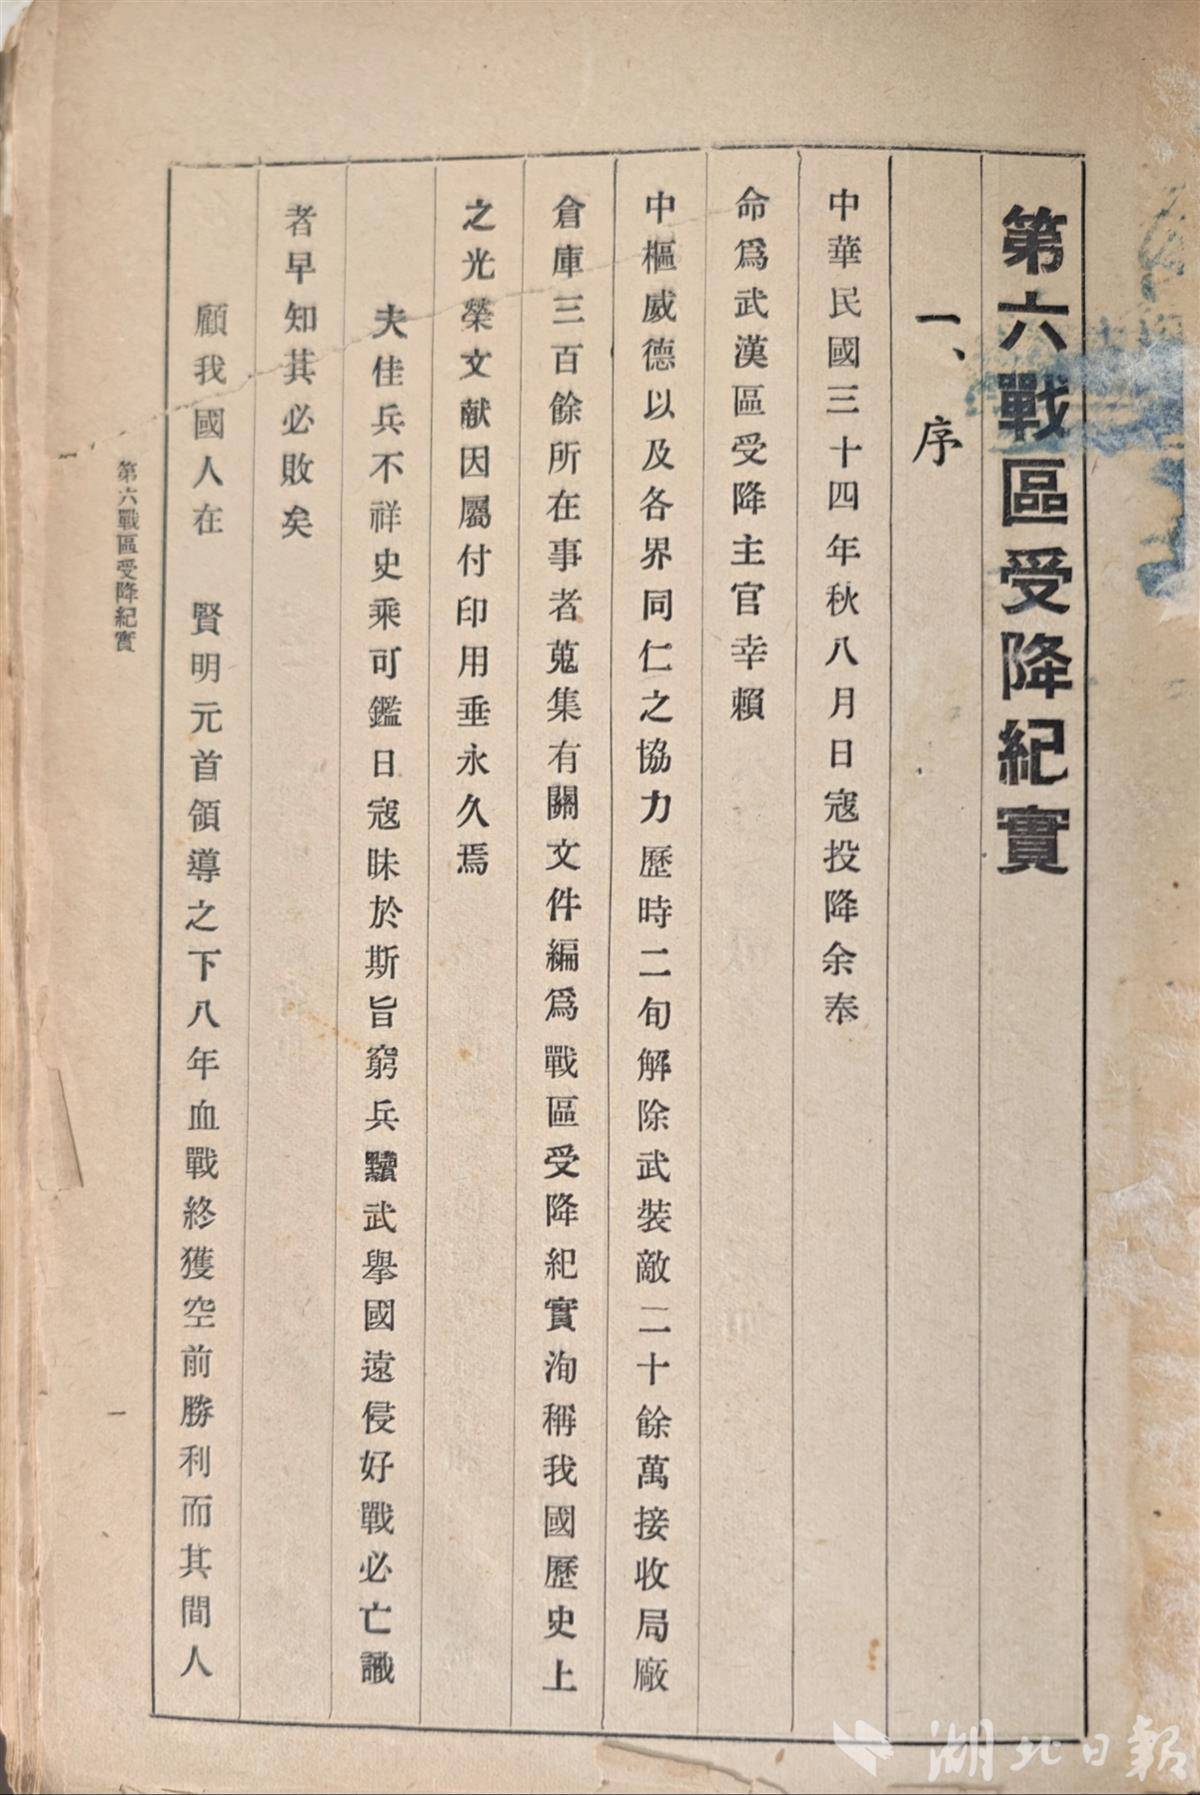 第六戰區受降紀實
一、序
中華民國三十四年秋八月日寇投降余奉
命爲武漢區受降主官幸賴
中樞威德以及各界同仁之協力歷時二旬解除武裝敵二十餘萬接收局廠
倉庫三百餘所在事者蒐集有關文件編爲戰區受降紀實洵稱我國歷史上
之光榮文献因屬付印用垂永久焉
夫佳兵不祥史乘可鑑日寇昧於斯旨窮兵黷武舉國遠侵好戰必亡識
者早知其必敗矣
顧我國人在　賢明元首領導之下八年血戰終獲空前勝利而其間人
第六戰區受降紀實
一
湖北日報